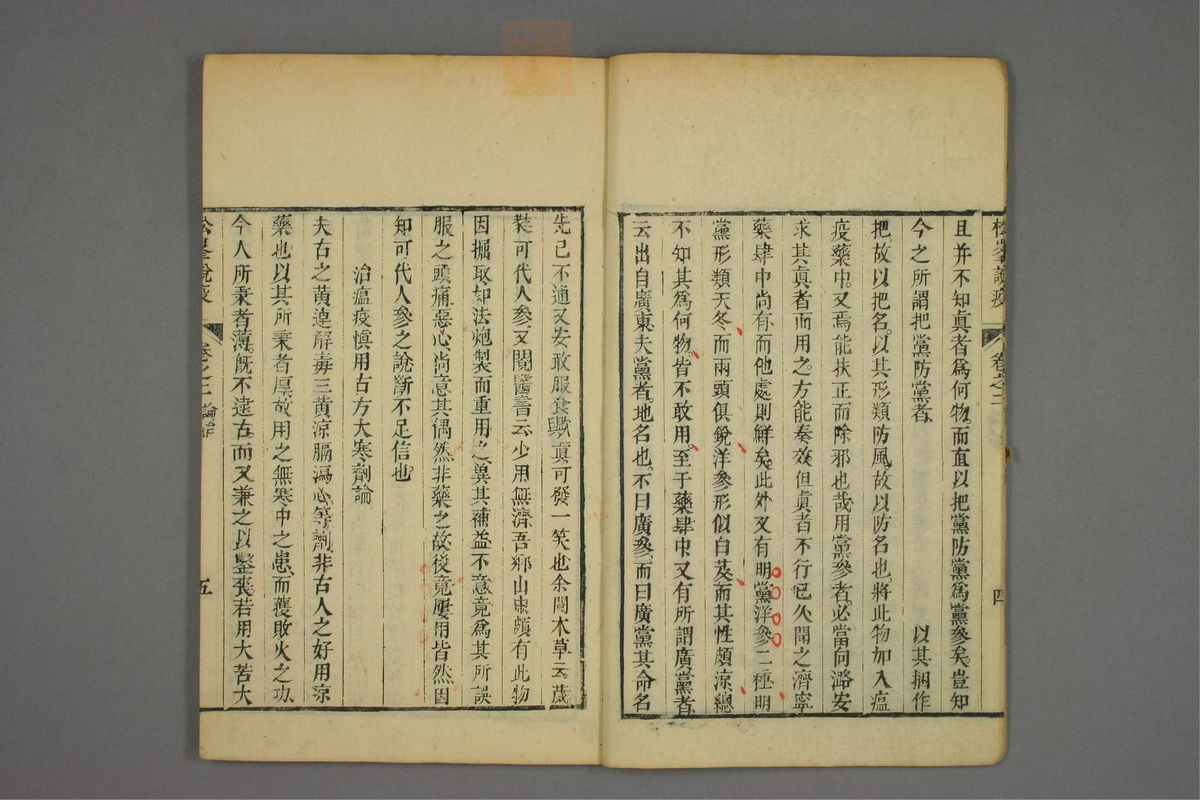 且并不知真者爲何物而直以把黨防黨爲黨參矣豈知
今之所謂把黨防黨者 以其捆作
把故以把名以其形類防風故以防名也將此物加入瘟
疫藥中又焉能扶正而除邪也哉用黨參者必當向潞安
求其真者而用之方能奏效但真者不行已久聞之濟寧
藥肆中尚有而他處則鮮矣此外又有明黨洋參二種明
黨形類天冬而兩頭俱銳洋參形似白芨而其性頗涼總
不知其爲何物皆不敢用至于藥肆中又有所謂廣黨者
云出自廣東夫黨者地名也不曰廣參而曰廣黨其命名
先已不通又安敢服食與真可發一笑也余閱本草云薇
蕤可代人參又閱醫書云少用無濟吾鄉山中頗有此物
因掘取如法炮製而重用之冀其補益不意竟爲其所誤
服之頭痛惡心尚意其偶然非藥之故後竟屢用皆然因
知可代人參之說斷不足信也
治瘟疫慎用古方大寒劑論
夫古之黃連解毒三黃涼膈瀉心等劑非古人之好用涼
藥也以其所秉者厚故用之無寒中之患而獲敗火之功
今人所秉者薄既不遠古而又兼之以鑿喪若用大苦大
松峯說疫 卷之二 論治 五